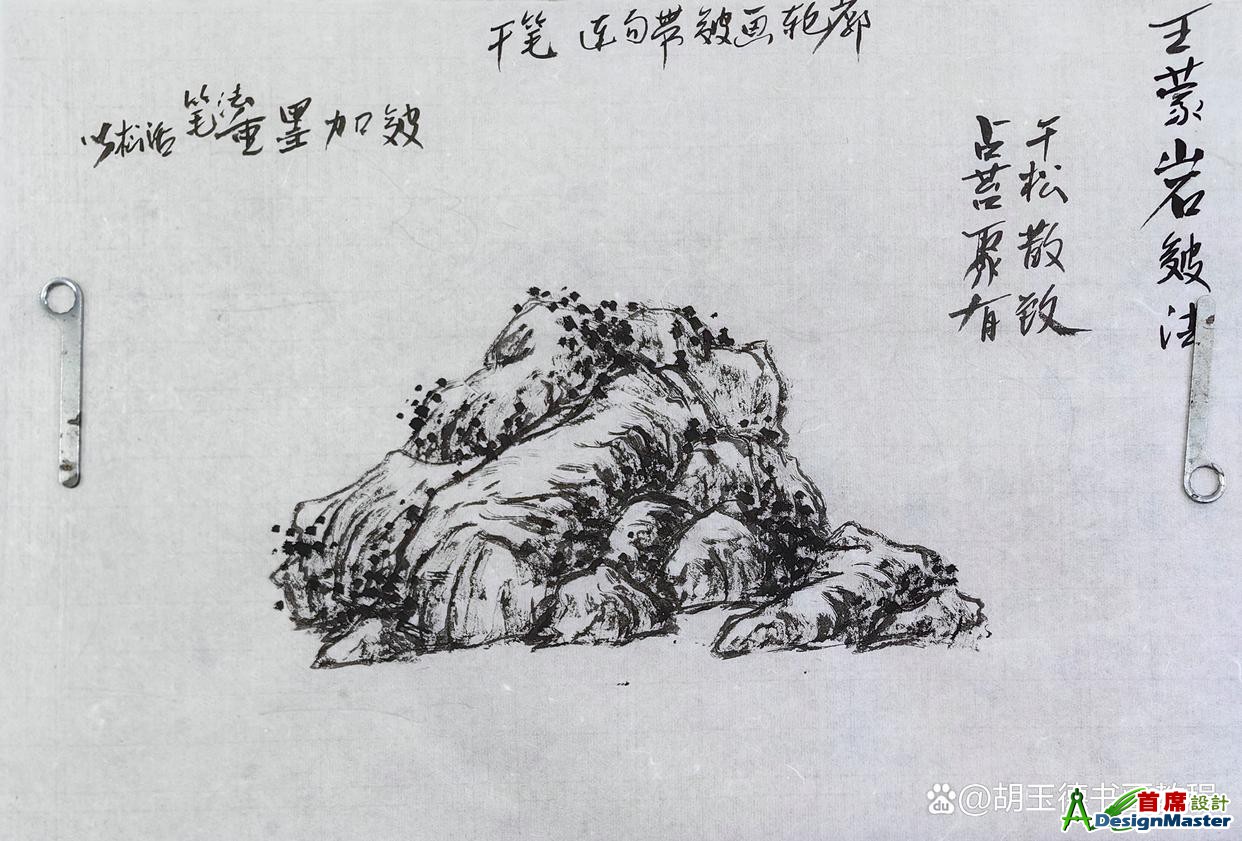 王蒙岩皴法
干松散致
占苔聚有
干笔 连勾带皴画轮廓
以松活笔法重墨加皴
du @胡玉
首席設計
DesignMaster